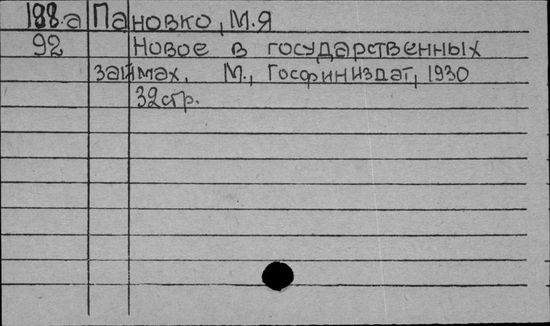 188.а Пановко, М.Я
92 Новое в государственных
займах. М., Госфиниздат, 1930
32 стр.